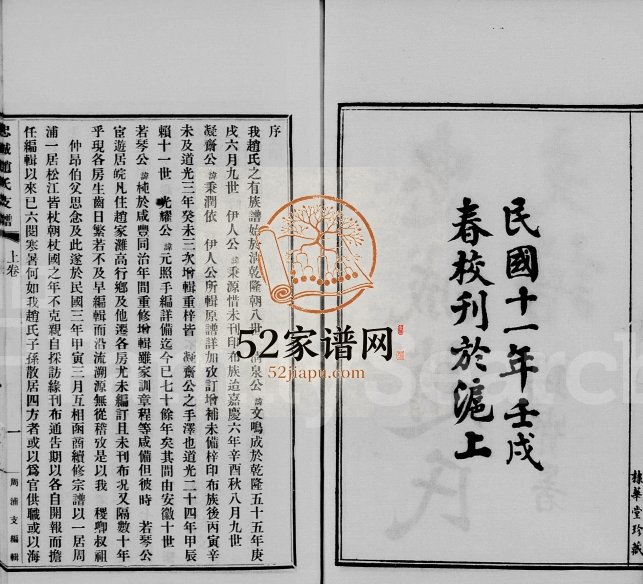 民國十一年壬戌
春校刊於滬上
棣華堂珍藏
序
我趙氏之有族譜始於清乾隆朝八世 泉公諱文鳴成於乾隆五十五年庚
戌六月九世 伊人公諱秉源惜未刊印布族迨嘉慶六年辛酉秋八月九世
凝齋公諱秉潤依 伊人公所輯原譜詳加攷訂增補未備梓印布族後丙寅辛
未及道光三年癸未三次增輯重梓皆 凝齋公之手澤也道光二十四年甲辰
賴十一世 光耀公諱元照手編詳備迄今已七十餘年矣其間由安徽十世
若琴公諱 於咸豐同治年間重修增輯雖家訓章程等咸備但彼時 若琴公
宦遊居皖凡住趙家灘高行鄉及他遷各房尤未編訂且未刊布況又隔數十年
乎現各房生齒日繁若不及早編輯而沿流溯源無從稽攷是以我 稷卿叔祖
仲昂伯父思念及此遂於民國三年甲寅三月互相函商續修宗譜以一居周
浦一居松江皆杖朝杖國之年不克親自採訪緣刊布通告期以各自開報而擔
任編輯以來已六閱寒暑何如我趙氏子孫散居四方者或以爲官供職或以海
忠誠趙氏支譜
上卷
一
周浦支編輯
52家谱网
52jiapu.com